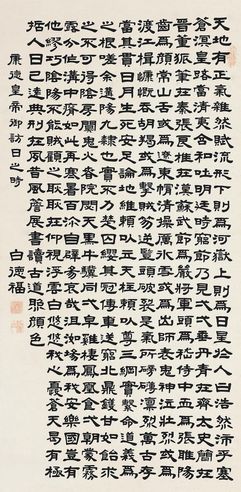 天地有正氣雜然賦流形下則爲河嶽上則爲日星於人曰浩然沛乎塞
蒼溟皇路當清夷含和吐明廷時窮節乃見弌弌垂丹青在齊太史簡在
晉董狐筆在秦張良椎在漢蘇武節爲嚴將軍頭爲嵇侍中血爲張睢陽
齒爲顏常山舌或爲遼東帽清操厲冰雪或爲出師表鬼神泣壯烈或爲
渡江楫慷慨吞胡羯或爲擊賊笏逆豎頭破裂是氣所磅礴凜烈萬古存
當其貫日月生死安足論地維賴以立天柱賴以尊三綱實繫命道義爲
之根嗟余遘陽九隸也實不力楚囚纓其冠傳車送窮北鼎鑊甘如飴求
之不可得陰房闃鬼火春院閟天黑牛驥同弌皁雞棲鳳凰食弌朝蒙霧
露分作溝中瘠如此再寒暑百沴自辟易哀哉沮洳場爲我安樂國豈有
他繆巧陰陽不能賊顧此耿耿在仰視浮雲白悠悠我心憂蒼天曷有極
哲人日已遠典刑在夙昔風簷展書讀古道照顏色
康德皇帝御訪日之時 白德福